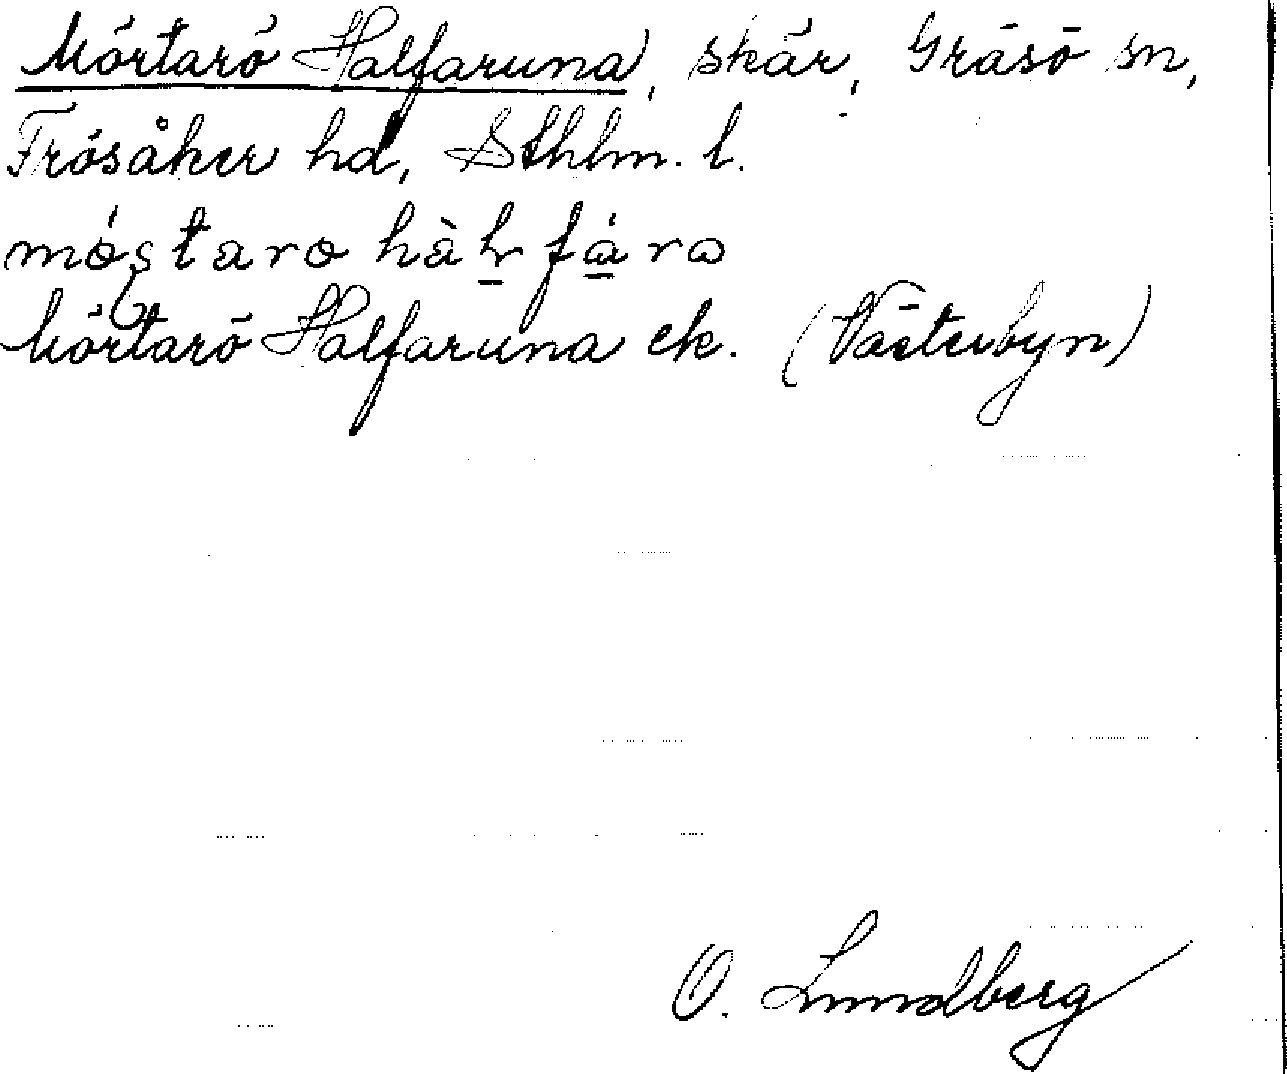 Mörtarö Halfaruna, skär, Gräsö sn,
Frösåker hd, Sthlm. l.
Mörtarö Halfaruna ek. (Västerbyn)
O. Lundberg